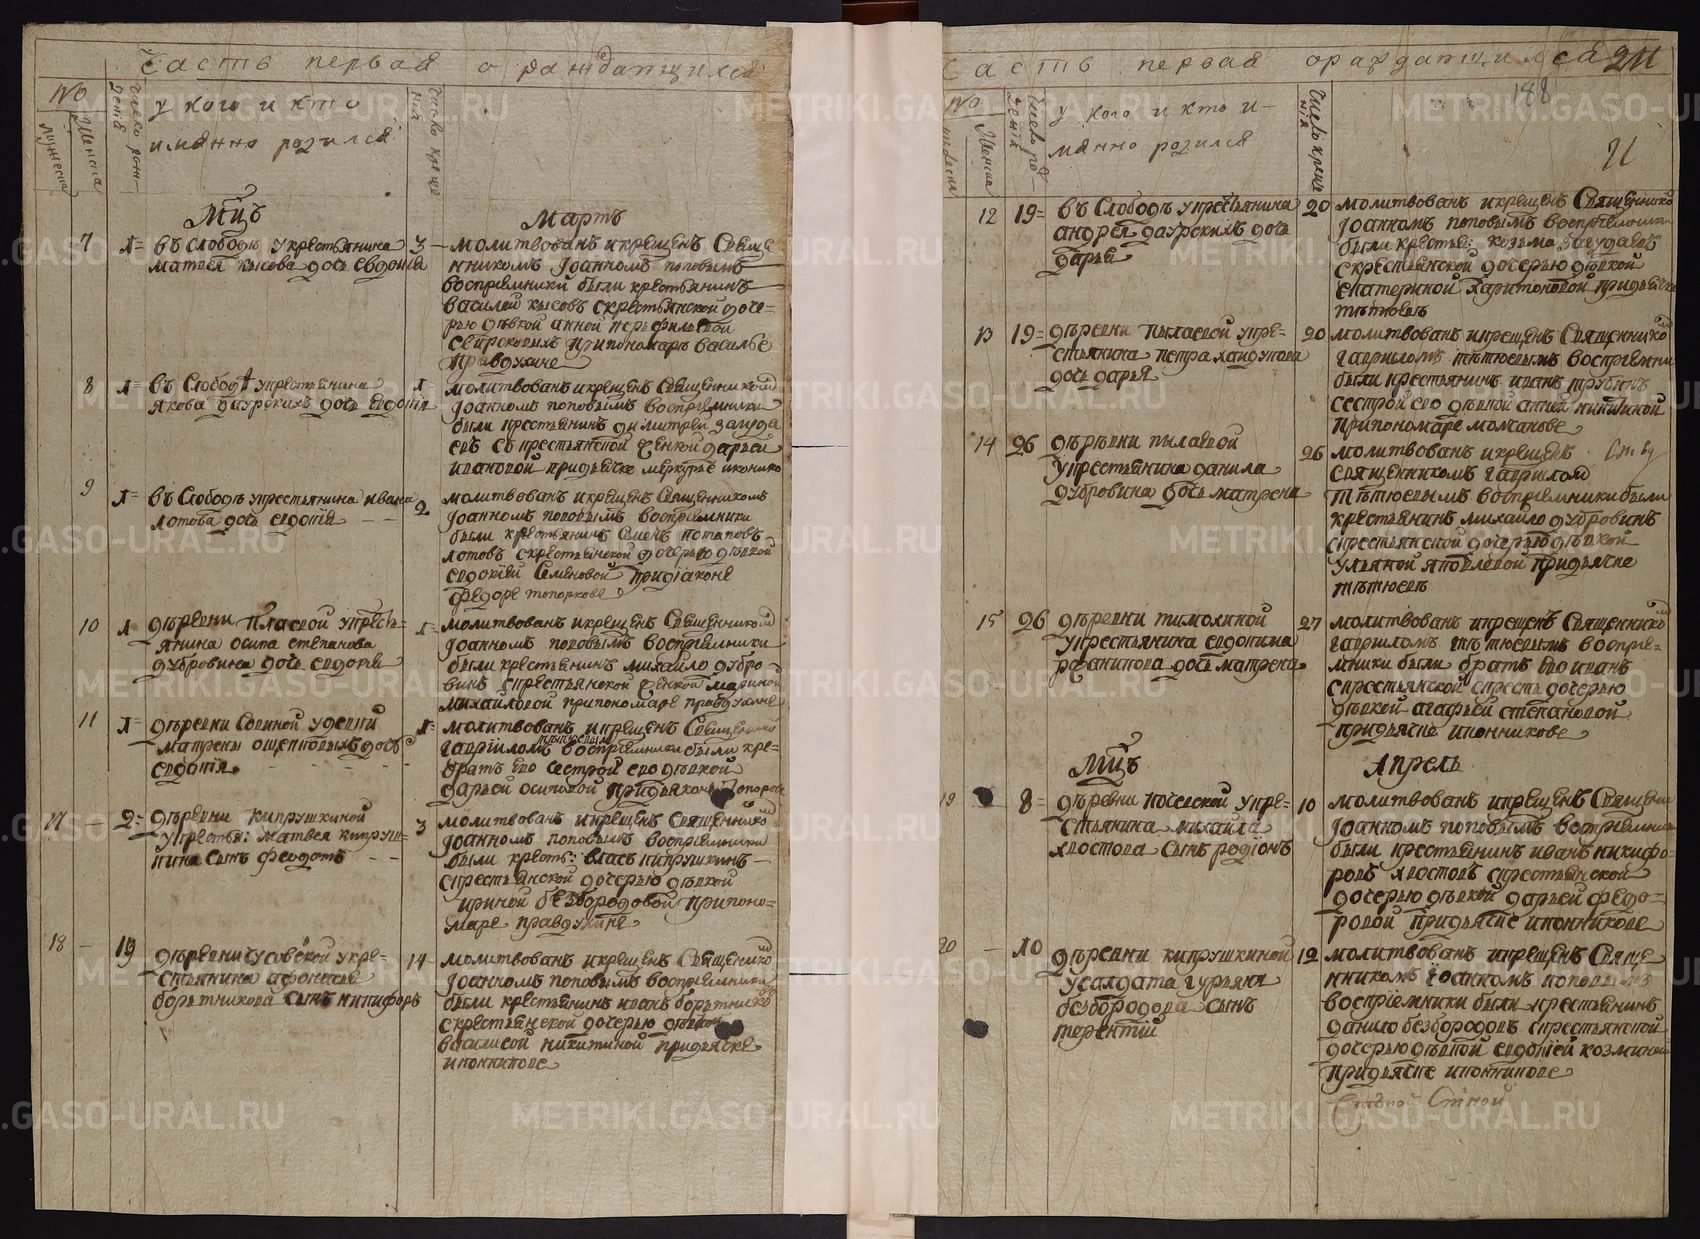 часть первая о раждатщихся
№
мужеска
Женска
число рож-
дения
у кого и кто
имянно родился
число креще
ния
Мцъ
Мартъ
7
въ слободъ укрестьянина
Матвея кысова дочь Евдокия
3
молитвованъ икрещенъ Свяще
нникомъ Іоанномъ поповымъ
восприемники были крестьянинъ
василей кысовъ скрестьянской доче-
рью дѣвкой анной
припономарѣ василье
правдухине
8
въ Слободѣ укрестьянина
якова даурскихъ дочь Евдокия
молитвованъ икрещенъ Священникомъ
Іоанномъ поповымъ восприемники
были крестьянинъ димитрей загуда
евъ съ крестьянской женкой дарьей
ивановой придьячке меркурье иконико
9
въ Слободѣ укрестьянина ивана
лотова дочь евдокия
2
молитвованъ икрещенъ Священникомъ
Іоанномъ поповымъ восприемники
были крестьянинъ Семенъ потаповъ
лотовъ скрестьянской дочерью дѣвкой
евдокией Семеновой придіаконе
федоре топоркове
10
дѣревни Пылаевой укресть-
янина осипа степанова
дубровина дочь евдокия
молитвованъ икрещенъ Священникомъ
Іоанномъ поповымъ восприемники
были крестьянинъ михайло дубро
винъ скрестьянской женкой мариной
михайловой припономаре правдухине
11
дѣревни Совиной удевки
матрены ощепковыхъ дочь
евдокия
молитвованъ икрещенъ Священико
гаврииломъ тѣтюевымъ восприемники были кре-
братъ ево сестрой ево дѣвкой
дарьей осиповой придьяконе Топорове
17
2
дѣревни кипрушкиной
укресть: матвея кипруш-
кина сынъ феодотъ
3
молитвованъ икрещенъ Священнико
Іоанномъ поповымъ восприемники
были кресть: власъ кипрушкинъ
скрестьянской дочерью дѣвкой
ириной безбородовой припоно-
маре правдухине
18
19
дѣревни чусовской укре-
стьянина афонасея
боратникова сынъ никифоръ
14
молитвованъ икрещенъ Священико
Іоанномъ поповымъ восприемники
были крестьянинъ иванъ боратнико
скрестьянской дочерью дѣвкой
василисой никитиной придьячке
иконникове
часть первая о раждатщихся
211
188
№
Женска
число ро-
дения
у кого и кто и-
мянно родился
число креще
ния
12
19
въ Слободъ укрестьянина
андрея даурскихъ дочь
дарья
20
молитвованъ икрещенъ Священнико
Іоанномъ поповымъ восприемники
были кресть: козьма загудаевъ
скрестьянской дочерью дѣвкой
екатериной харитоновой придьячке
тѣтюевъ
13
19
дѣревни пылаевой укре-
стьянина петра хайдукова
дочь дарья
20
молитвованъ икрещенъ Священнико
гаврииломъ тѣтюевымъ восприемни
были крестьянинъ иванъ трубинъ
сестрой ево дѣвкой анной никитиной
припономаре молчанове
14
26
дѣревни пылаевой
укрестьянина данила
дубровина дочь матрена
26
молитвованъ икрещенъ
священникомъ гаврилом
тѣтюевымъ восприемники были
крестьянинъ михайло дубровинъ
скрестьянской дочерью дѣвкой
ульяной яковлевой придьячке
тѣтюевъ
15
26
дѣревни
укрестьянина евдокима
дочь матрена
27
молитвованъ икрещенъ Священнико
гаврииломъ тѣтюевымъ восприе-
мники были братъ ево иванъ
скрестьянской дочерью
дѣвкой агафьей степановой
придьячке иконникове
Мцъ
Апрель
19
8
дѣревни укре-
стьянина михаила
хвостова сынъ родіонъ
10
молитвованъ икрещенъ Священни
Іоанномъ поповымъ восприемники
были крестьянинъ иванъ никифо-
ровъ хвостовъ скрестьянской
дочерью дѣвкой дарьей федо-
ровой придьячке иконникове
20
10
дѣревни кипрушкиной
усалдата гурьяна
безбородова сынъ
терентий
12
молитвованъ икрещенъ Свяще
нникомъ Іоанномъ поповымъ
восприемники были крестьянинъ
данило безбородовъ скрестьянской
дочерью дѣвкой евдокией козминой
придьячке иконникове